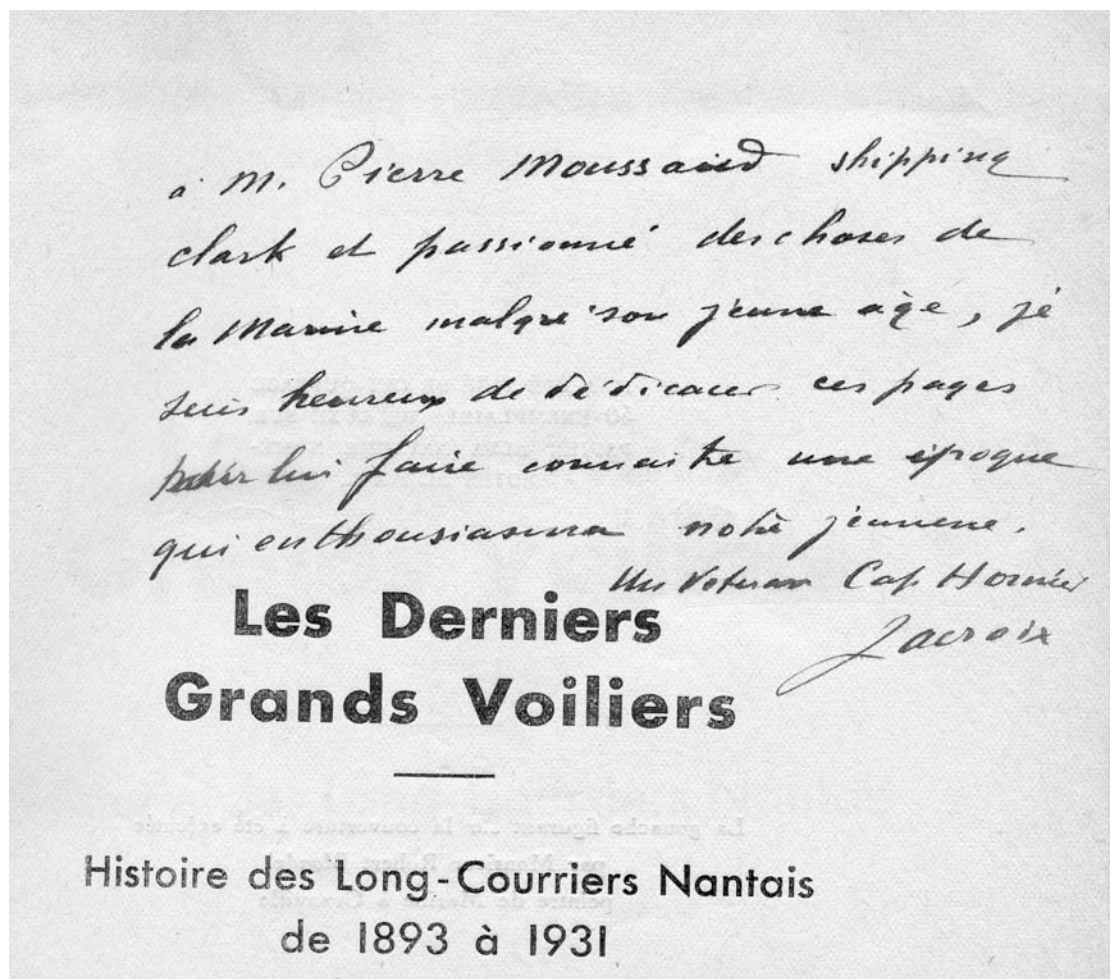 à M. Pierre Moussaud shipping
clark et passionné des choses de
la Marine malgré son jeune âge, je
suis heureux de dédicacer ces pages
pour lui faire connaitre une époque
qui enthousiasma notre jeunesse.
Un Veteran Cap Hornier
Lacroix
Les Derniers
Grands Voiliers
Histoire des Long-Courriers Nantais
de 1893 à 1931